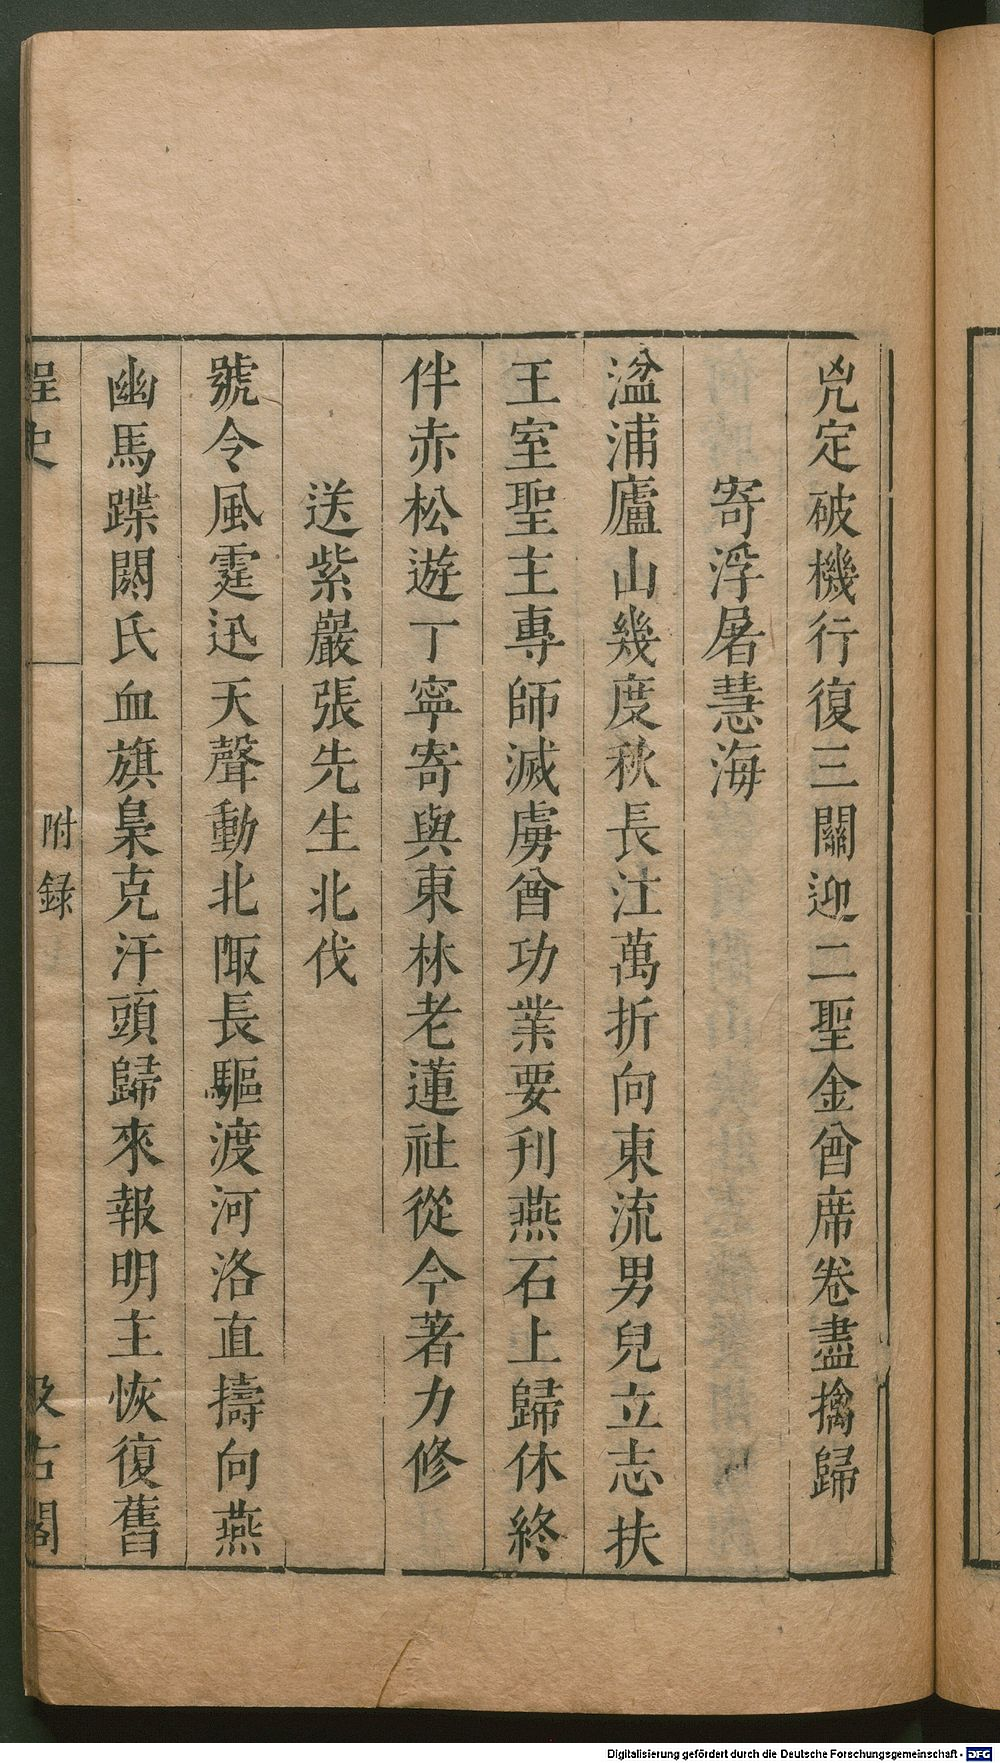 兇定破機行復三關迎二聖金酋席卷盡擒歸
寄浮屠慧海
湓浦廬山幾度秋長江萬折向東流男兒立志扶
王室聖主專師滅虜酋功業要刊燕石上歸休終
伴赤松遊丁寧寄與東林老蓮社從今著力修
送紫巖張先生北伐
號令風霆迅天聲動北陬長驅渡河洛直擣向燕
幽馬蹀閼氏血旗梟克汗頭歸來報明主恢復舊
桯史
附録
汲古閣
Digitalisierung gefördert durch die Deutsche Forschungsgemeinschaft - DFG